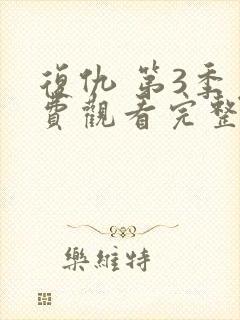 復仇 第3季
費觀看完整
樂維特